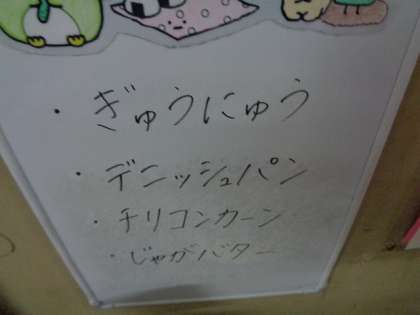 ・ぎゅうにゅう
・デニッシュパン
・チリコンカーン
・じゃがバター